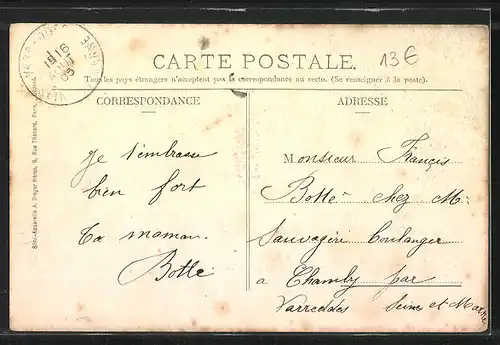 CARTE POSTALE.
13€
Tous les pays étrangers n'acceptent pas la correspondance au recto. (Se renseigner à la poste).
CORRESPONDANCE
ADRESSE
Je t'embrasse
bien fort
Ta maman.
Botté
Monsieur François
Botté chez M.
Sauvagère boulanger
a Chamby par
Varreddes Seine et Marne
16
05